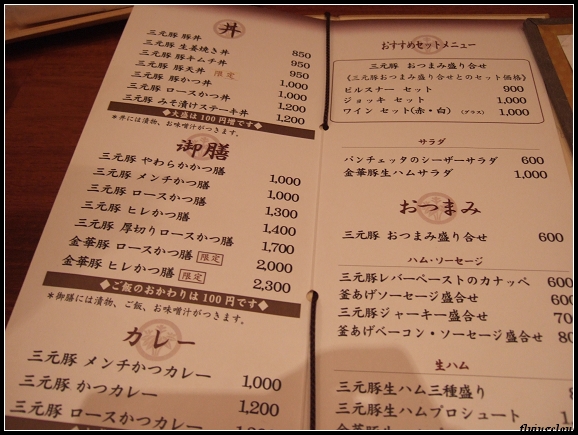 丼
三元豚 豚丼 850
三元豚 生姜焼き丼 950
三元豚 豚キムチ丼 950
三元豚 豚天丼 限定 1,000
三元豚 豚かつ丼 1,000
三元豚 ロースかつ丼 1,200
三元豚 みそ漬けステーキ丼 1,200
◆大盛は100円増です◆
*丼には漬物、お味噌汁がつきます。
御膳
三元豚 やわらかかつ膳 1,000
三元豚 メンチかつ膳 1,000
三元豚 ロースかつ膳 1,300
三元豚 ヒレかつ膳 1,400
三元豚 厚切りロースかつ膳 1,700
金華豚 ロースかつ膳 限定 2,000
金華豚 ヒレかつ膳 限定 2,300
◆ご飯のおかわりは100円です◆
*御膳には漬物、ご飯、お味噌汁がつきます。
カレー
三元豚 メンチかつカレー 1,000
三元豚 かつカレー 1,200
三元豚 ロースかつカレー
おすすめセットメニュー
三元豚 おつまみ盛り合せ
(三元豚おつまみ盛り合せとのセット価格)
ピルスナー セット 900
ジョッキ セット 1,000
ワイン セット(赤・白) (グラス) 1,000
サラダ
パンチェッタのシーザーサラダ 600
金華豚生ハムサラダ 1,000
おつまみ
三元豚 おつまみ盛り合せ 600
ハム・ソーセージ
三元豚レバーペーストのカナッペ 600
釜あげソーセージ盛合せ 600
三元豚ジャーキー盛合せ
釜あげベーコン・ソーセージ盛合せ
生ハム
三元豚生ハム三種盛り
三元豚生ハムプロシュート
flyingclou